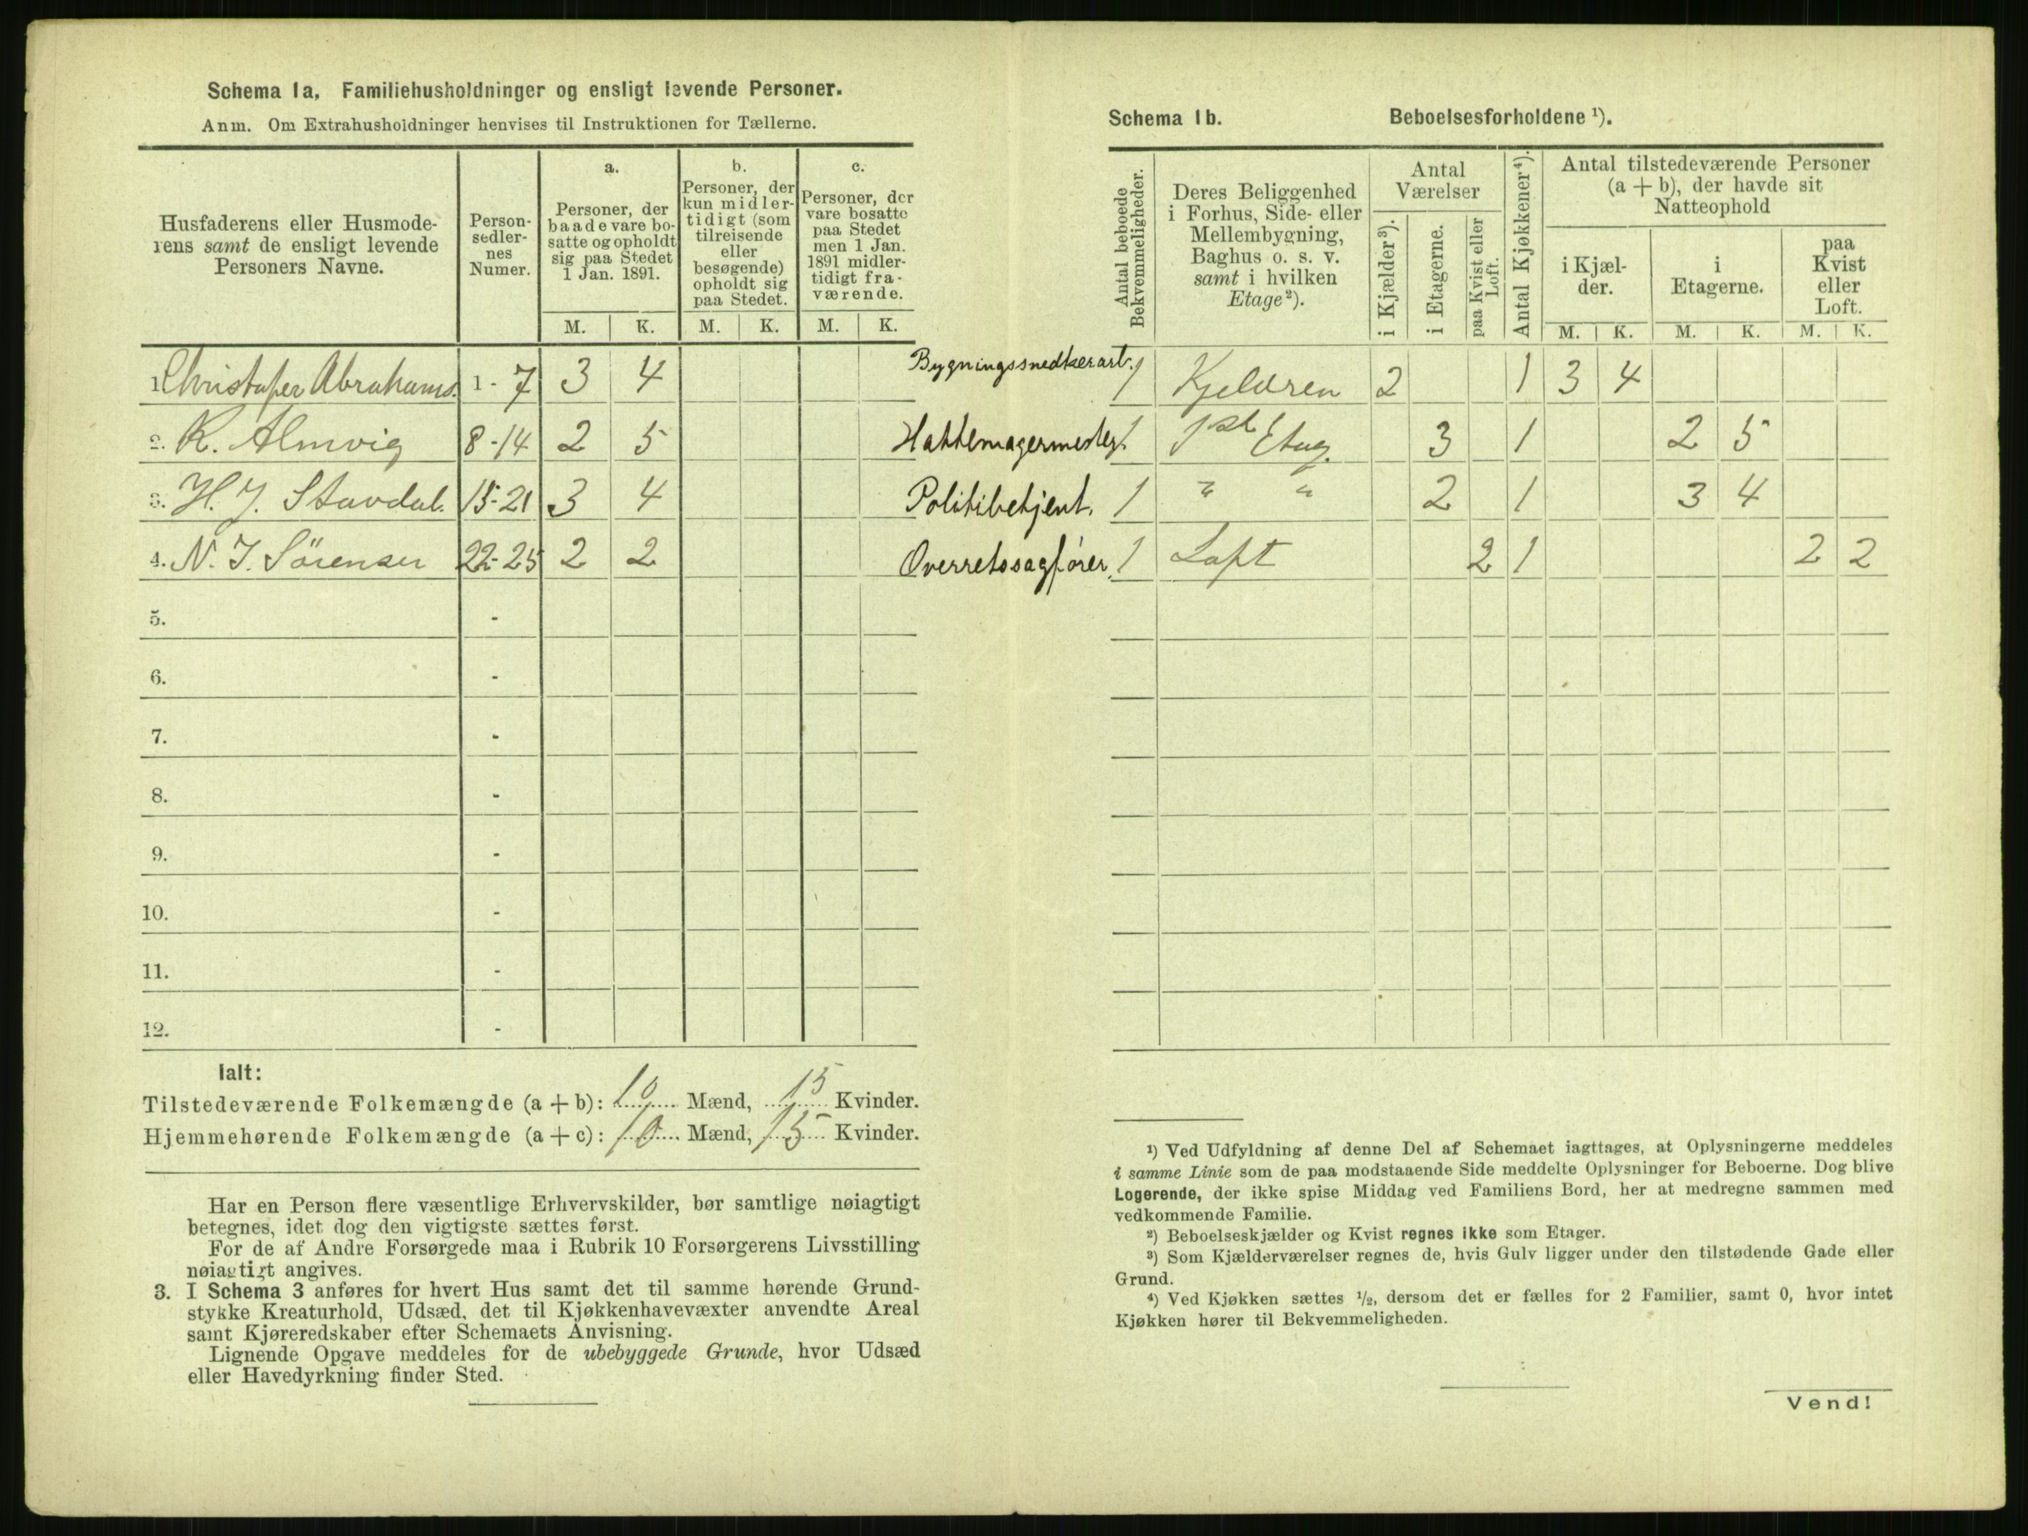 Schema 1a. Familiehusholdninger og ensligt levende Personer.
Anm. Om Extrahusholdninger henvises til Instruktionen for Tællerne.
Husfaderens eller Husmode-
rens samt de ensligt levende
Personers Navne.
Person-
sedler-
nes
Numer.
a.
Personer, der
baade vare bo-
satte og opholdt
sig paa Stedet
1 Jan. 1891.
M. K.
b.
Personer, der
kun midler-
tidigt (som
tilreisende
eller
besøgende)
opholdt sig
paa Stedet.
M. K.
c.
Personer, der
vare bosatte
paa Stedet
men 1 Jan.
1891 midler-
tidigt fra-
værende.
M. K.
1. Christofer Abrahams. 1 - 7 3 4 Bygningssnedkerarb.
2. K. Almvig 8-14 2 5 Hattemagermester
3. H. J. Stavdal. 15-21 3 4 Politibetjent.
4. N. J. Sörensen 22-25 2 2 Overretssagfører.
5. -
6. -
7. -
8. -
9. -
10. -
11. -
12. -
Ialt:
Tilstedeværende Folkemængde (a + b): 10 Mænd, 15 Kvinder.
Hjemmehørende Folkemængde (a + c): 10 Mænd, 15 Kvinder.
Har en Person flere væsentlige Erhvervskilder, bør samtlige nøiagtigt
betegnes, idet dog den vigtigste sættes først.
For de af Andre Forsørgede maa i Rubrik 10 Forsørgerens Livsstilling
nøiagtigt angives.
3. I Schema 3 anføres for hvert Hus samt det til samme hørende Grund-
stykke Kreaturhold, Udsæd, det til Kjøkkenhavevæxter anvendte Areal
samt Kjøreredskaber efter Schemaets Anvisning.
Lignende Opgave meddeles for de ubebyggede Grunde, hvor Udsæd
eller Havedyrkning finder Sted.
Schema 1b. Beboelsesforholdene ¹).
Antal beboede
Bekvemmeligheder.
Deres Beliggenhed
i Forhus, Side- eller
Mellembygning,
Baghus o. s. v.
samt i hvilken
Etage²).
Antal
Værelser
i Kjælder³).
i Etagerne.
paa Kvist eller
Loft.
Antal Kjøkkener⁴).
Antal tilstedeværende Personer
(a + b), der havde sit
Natteophold
i Kjæl-
der.
M. K.
i
Etagerne.
M. K.
paa
Kvist
eller
Loft.
M. K.
1 Kjeldren 2 1 3 4
1 1ste Etag. 3 1 2 5
1 " " 2 1 3 4
1 Loft 2 1 2 2
¹) Ved Udfyldning af denne Del af Schemaet iagttages, at Oplysningerne meddeles
i samme Linie som de paa modstaaende Side meddelte Oplysninger for Beboerne. Dog blive
Logerende, der ikke spise Middag ved Familiens Bord, her at medregne sammen med
vedkommende Familie.
²) Beboelseskjælder og Kvist regnes ikke som Etager.
³) Som Kjælderværelser regnes de, hvis Gulv ligger under den tilstødende Gade eller
Grund.
⁴) Ved Kjøkken sættes ¹/₂, dersom det er fælles for 2 Familier, samt 0, hvor intet
Kjøkken hører til Bekvemmeligheden.
Vend!